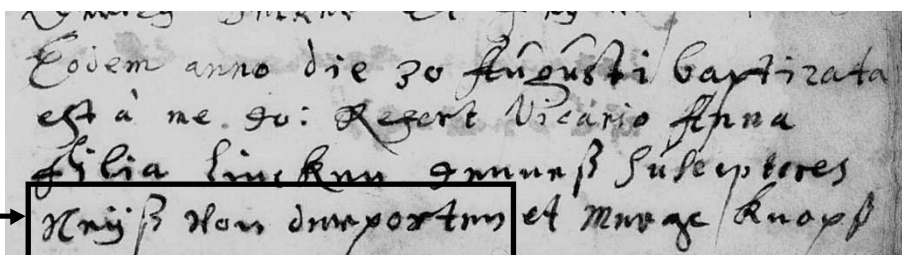 Eodem anno die 30 Augusti baptizata
est à me Jo: Regert Vicario Anna
filia Lincken Jenneß Susceptores
Neiß Von derporten et Merge Knops